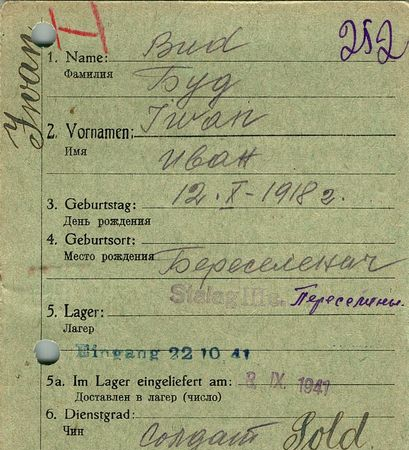 Iwan
252
1. Name: Bud
Фамилия Буд
2. Vornamen: Iwan
Имя Иван
3. Geburtstag: 12. X - 1918 г.
День рождения
4. Geburtsort:
Место рождения Береселенач
Stalag Переселены.
5. Lager:
Лагер
Eingang 22 10 41
5a. Im Lager eingeliefert am: 8. IX. 1941
Доставлен в лагер (число)
6. Dienstgrad:
Чин солдат Sold.